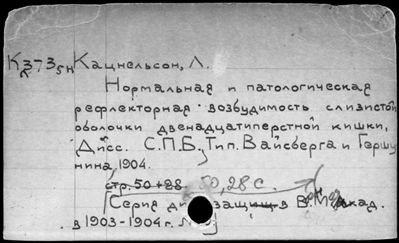 Кацнельсон, Л.
Нормальная и патологическая
рефлекторная возбудимость слизистой
оболочки двенадцатиперстной кишки,
Дисс. С.П.Б., Тип. Вайсберга и Гершу
нина, 1904.
стр. 50+28 50, 28 с.
Серия защ в акад.
в 1903-1904 г.